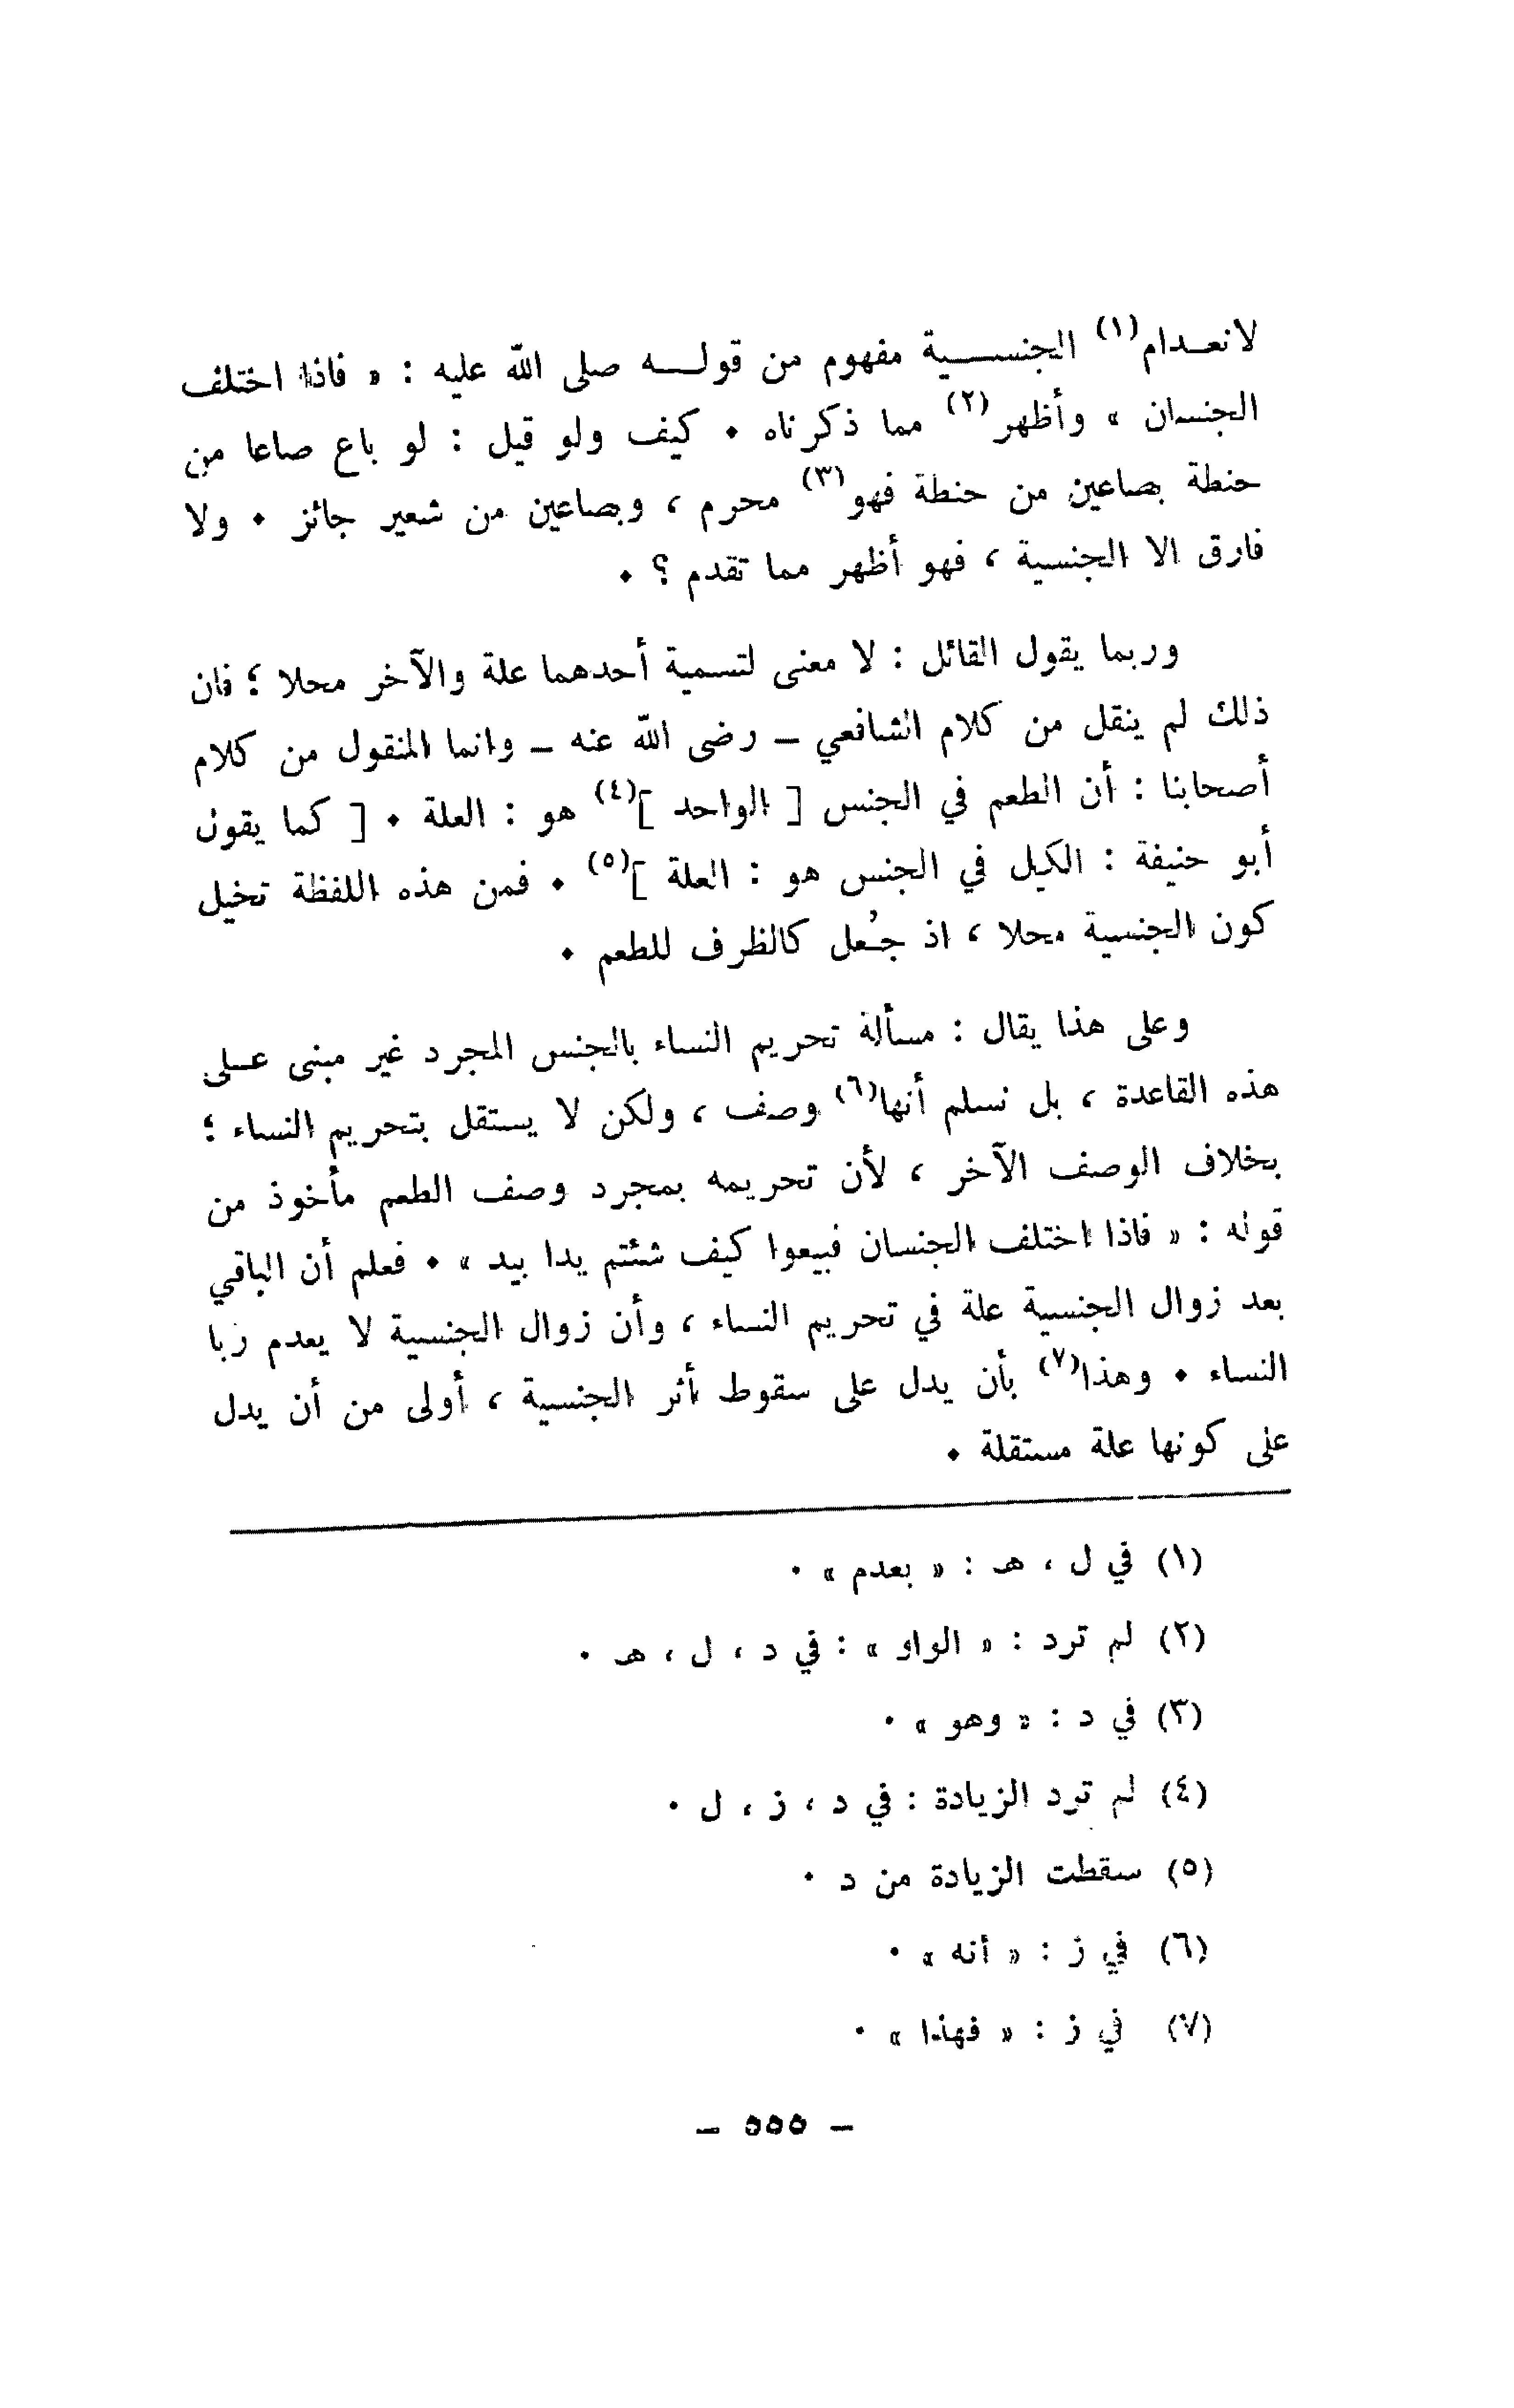 لانعـدام(١) الجنســـية مفهوم من قولـــه صلى الله عليه : « فاذا اختلف
الجنسان » وأظهر(٢) مما ذكرناه ٠ كيف ولو قيل : لو باع صاعا من
حنطة بصاعين من حنطة فهو(٣) محرم ، وبصاعين من شعير جائز ٠ ولا
فارق الا الجنسية ، فهو أظهر مما تقدم ؟ ٠
وربما يقول القائل : لا معنى لتسمية أحدهما علة والآخر محلا ؛ فان
ذلك لم ينقل من كلام الشافعي – رضى الله عنه – وانما المنقول من كلام
أصحابنا : أن الطعم في الجنس [ الواحد ](٤) هو : العلة ٠ [ كما يقول
أبو حنيفة : الكيل في الجنس هو : العلة ](٥) ٠ فمن هذه اللفظة تخيل
كون الجنسية محلا ، اذ جُعل كالظرف للطعم ٠
وعلى هذا يقال : مسألة تحريم النساء بالجنس المجرد غير مبنى عـلى
هذه القاعدة ، بل نسلم أنها(٦) وصف ، ولكن لا يستقل بتحريم النساء ؛
بخلاف الوصف الآخر ، لأن تحريمه بمجرد وصف الطعم مأخوذ من
قوله : « فاذا اختلف الجنسان فبيعوا كيف شئتم يدا بيد » ٠ فعلم أن الباقي
بعد زوال الجنسية علة في تحريم النساء ، وأن زوال الجنسية لا يعدم ربا
النساء ٠ وهذا(٧) بأن يدل على سقوط أثر الجنسية ، أولى من أن يدل
على كونها علة مستقلة ٠
(١) في ل ، هـ : « بعدم » ٠
(٢) لم ترد : « الواو » : في د ، ل ، هـ ٠
(٣) في د : « وهو » ٠
(٤) لم ترد الزيادة : في د ، ز ، ل ٠
(٥) سقطت الزيادة من د ٠
(٦) في ز : « أنه » ٠
(٧) في ز : « فهذا » ٠
– ٥٥٥ –